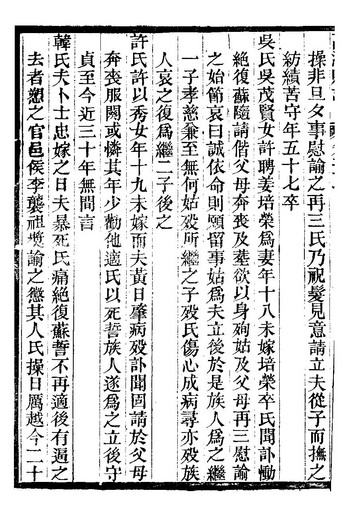 操非旦夕事慰諭之再三氏乃祝髮見意請立夫從子而撫之
紡績苦守年五十七卒
吳氏吳茂賢女許聘姜培榮爲妻年十八未嫁培榮卒氏聞訃慟
絶復蘇隨請偕父母奔喪及塟欲以身殉姑及父母再三慰諭
之始節哀曰誠依命則願留事姑爲夫立後於是族人爲之繼
一子孝慈兼至無何姑歿所繼之子歿氏傷心成病尋亦歿族
人哀之復爲繼二子後之
許氏許以秀女年十九未嫁而夫黃日肇病歿訃聞固請於父母
奔喪服闋或憐其年少勸他適氏以死誓族人遂爲之立後守
貞至今近三十年無間言
韓氏夫卜士忠嫁之日夫暴死氏痛絶復蘇誓不再適後有逼之
去者愬之官邑侯李襲祖奬諭之懲其人氏操日厲越今二十